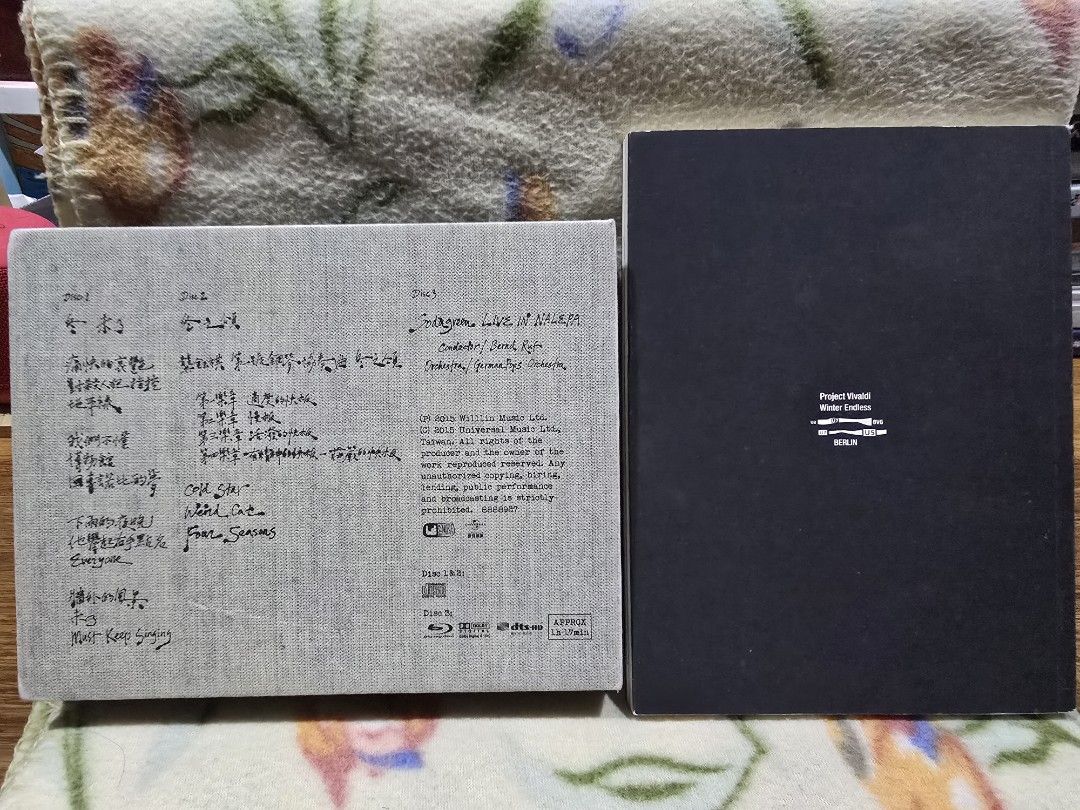 Disc 1
冬 未了
痛快的哀艷
對殺人犯指控
地平線
我們不懂
回車諾比的夢
下雨的夜晚
他舉起右手點名
Everyone
牆外的風景
未了
Must Keep Singing
Disc 2
冬之頌
龔鈺祺 第一號鋼琴協奏曲 冬之頌
第一樂章 適度的快板
第二樂章 慢板
第三樂章 詼諧的快板
第四樂章-有精神的快板-莊嚴的快板
Cold Star
Weird Cat
Four Seasons
Disc 3
Sodagreen LIVE IN NALEPA
Conductor/ Bernd Ruf
Orchestra/ German Pops Orchestra
(P) 2015 Willlin Music Ltd.
(C) 2015 Universal Music Ltd.,
Taiwan. All rights of the
producer and the owner of the
work reproduced reserved. Any
unauthorized copying, hiring,
lending, public performance
and broadcasting is strictly
prohibited. 6888987
Disc 1&2:
Disc 3:
DOLBY
DIGITAL
dts-HD
APPROX
1h 17min
Project Vivaldi
Winter Endless
BERLIN